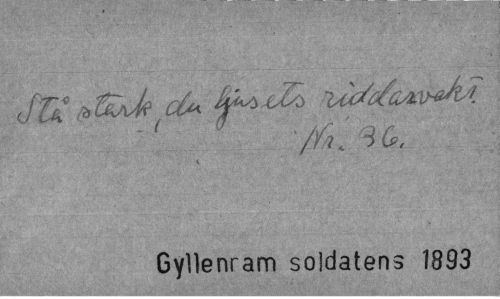 Stå stark, du ljusets riddarvakt.
Nr. 36.
Gyllenram soldatens 1893